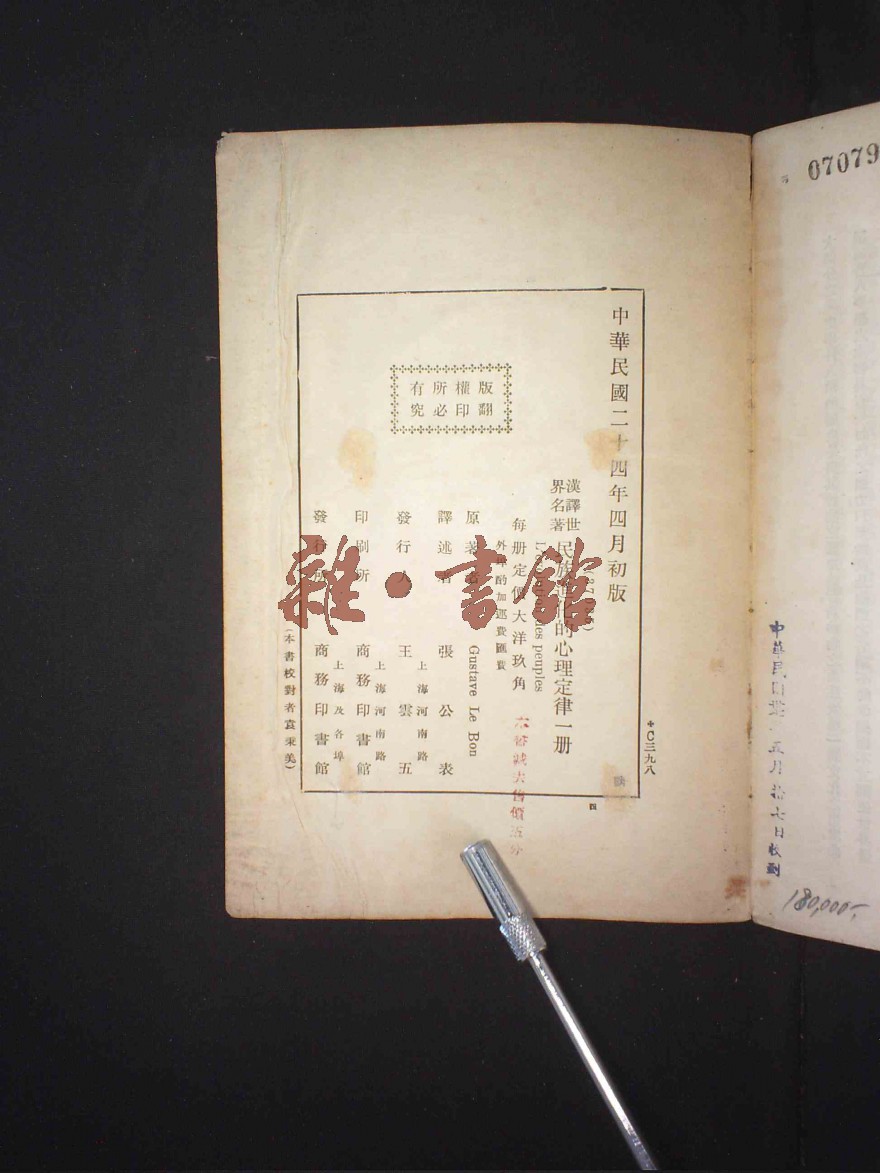 中華民國二十四年四月初版
＊C三九八
版權所有
翻印必究
漢譯世界名著
民族進化的心理定律一册
peuples
每册定價大洋玖角
外埠酌加運費匯費
原著者 Gustave Le Bon
譯述者 張公表
發行人 王雲五
上海河南路
印刷所 商務印書館
上海河南路
發行所 商務印書館
上海及各埠
(本書校對者袁秉美)
四
雜·書館
07079
月拾七日收到
180,000-